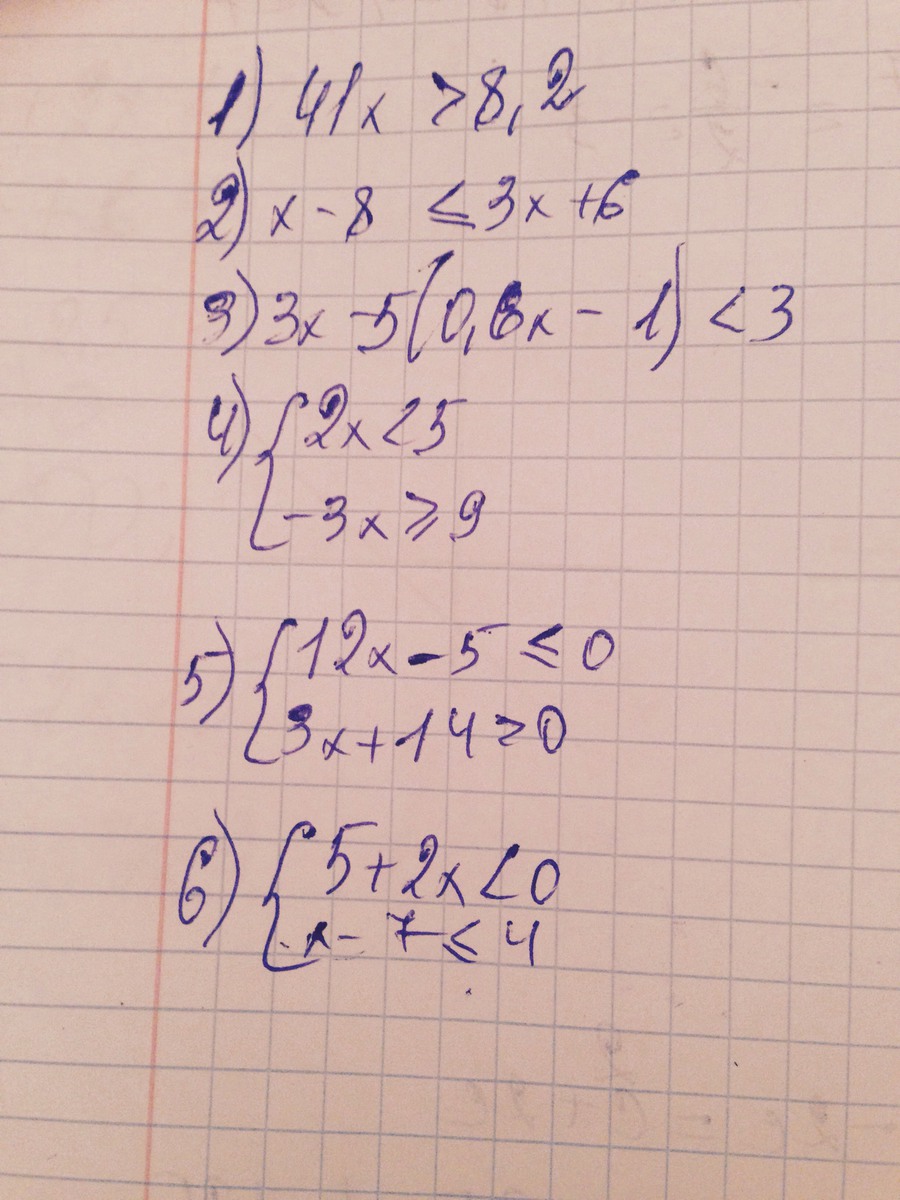 1) 41x > 8,2
2) x - 8 ≤ 3x + 6
3) 3x - 5(0,6x - 1) < 3
4) { 2x < 5
-3x ≥ 9
5) { 12x - 5 ≤ 0
3x + 14 > 0
6) { 5 + 2x < 0
x - 7 ≤ 4